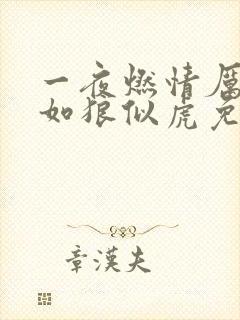 一夜燃情厲
如狼似虎免
章漢夫